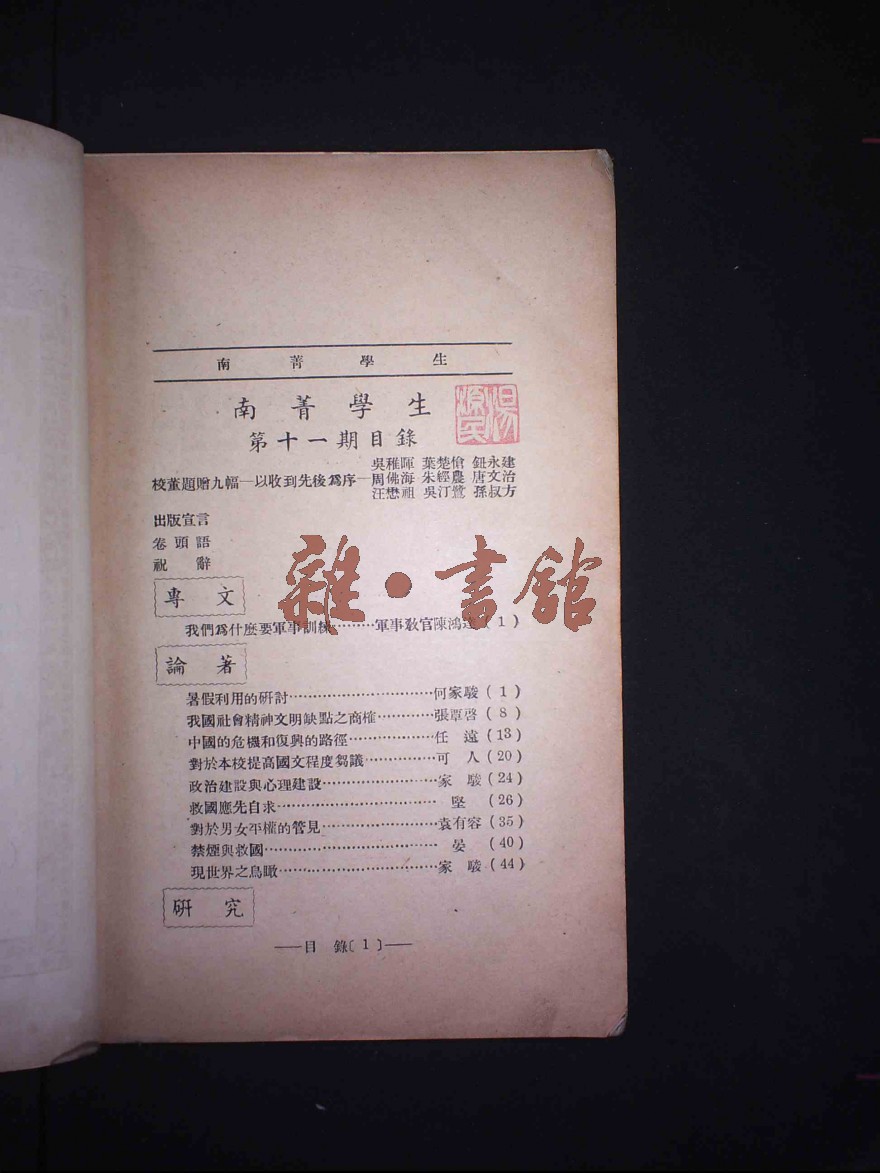 南菁學生
南菁學生
第十一期目錄
吳稚暉 葉楚傖 鈕永建
校董題贈九幅—以收到先後爲序—周佛海 朱經農 唐文治
汪懋祖 吳汀鷺 孫叔方
出版宣言
卷頭語
祝辭
雜·書館
專文
我們爲什麽要軍事訓練………軍事敎官陳鴻逵(1)
論著
暑假利用的硏討………………………………何家駿(1)
我國社會精神文明缺點之商榷…………張覃啓(8)
中國的危機和復興的路徑………………任遠(13)
對於本校提高國文程度芻議……………可人(20)
政治建設與心理建設……………………家駿(24)
救國應先自求………………………………堅(26)
對於男女平權的管見……………………袁有容(35)
禁煙與救國…………………………………晏(40)
現世界之鳥瞰……………………………家駿(44)
硏究
——目錄〔1〕——